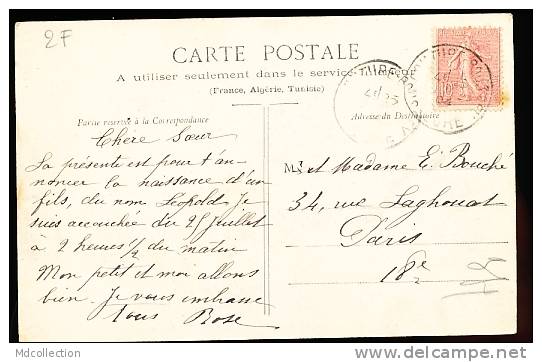 2F
CARTE POSTALE
A utiliser seulement dans le service intérieur
(France, Algérie, Tunisie)
Partie réservée à la Correspondance
Adresse du Destinataire
Chère Sœur
La présente est pour t'an-
noncer la naissance d'un
fils, du nom Léopold. Je
suis accouchée du 25 juillet
à 2 heures 1/2 du matin
Mon petit et moi allons
bien. Je vous embrasse
tous Rose
Mr et Madame E. Bouché
34, rue Laghouat
Paris
18e
Mdcollection
http://www.delcampe.net